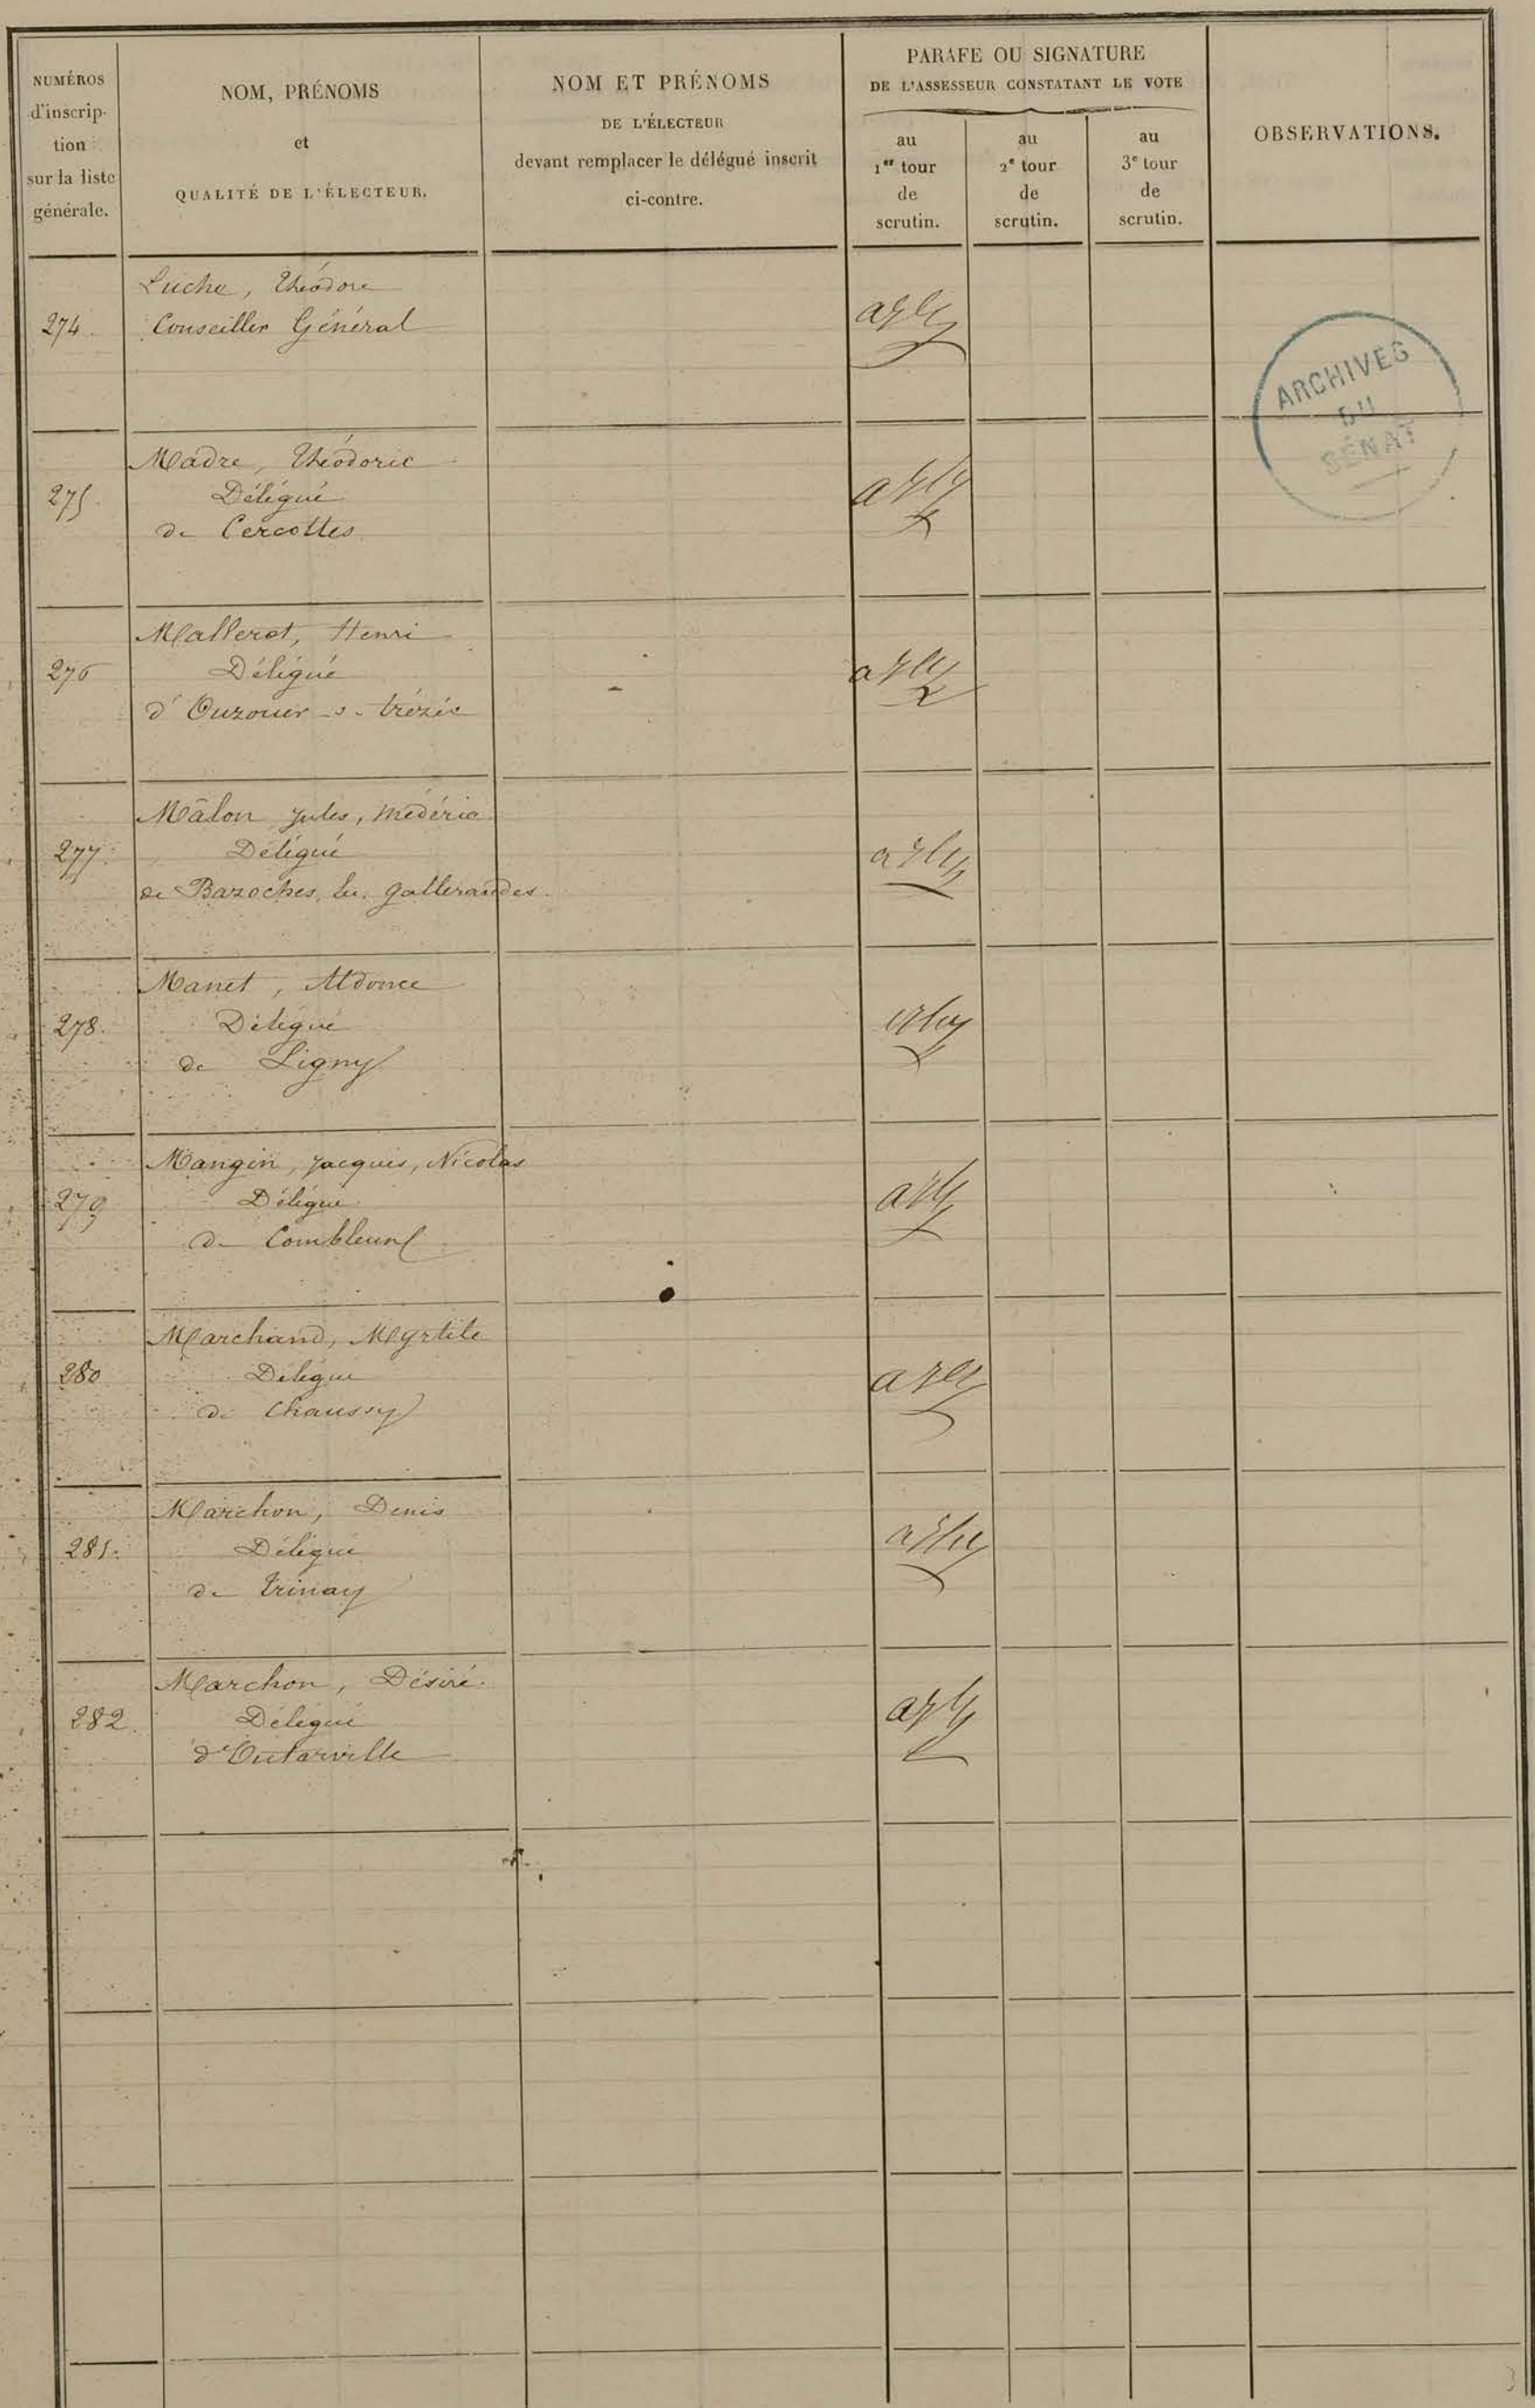 NUMÉROS
d'inscrip-
tion
sur la liste
générale.
NOM, PRÉNOMS
et
QUALITÉ DE L'ÉLECTEUR.
NOM ET PRÉNOMS
DE L'ÉLECTEUR
devant remplacer le délégué inscrit
ci-contre.
PARAFE OU SIGNATURE
DE L'ASSESSEUR CONSTATANT LE VOTE
au
1er tour
de
scrutin.
au
2e tour
de
scrutin.
au
3e tour
de
scrutin.
OBSERVATIONS.
Luche, Théodore
274. Conseiller Général
ARCHIVES
DU
SÉNAT
Madre, Théodoric
275. Délégué
de Cercottes
Mallerot, Henri
276 Délégué
d'Ouzouer-s-trézée
Mâlon Jules, Médéric
277. Délégué
de Bazoches les gallerandes
Manet, Aldonce
278. Délégué
de Ligny
Mangin, Jacques, Nicolas
279 Délégué
de Combleux
Marchand, Myrtile
280 Délégué
de Chaussy
Marchon, Denis
281. Délégué
de Trinay
Marchon, Désiré
282. Délégué
d'Outarville